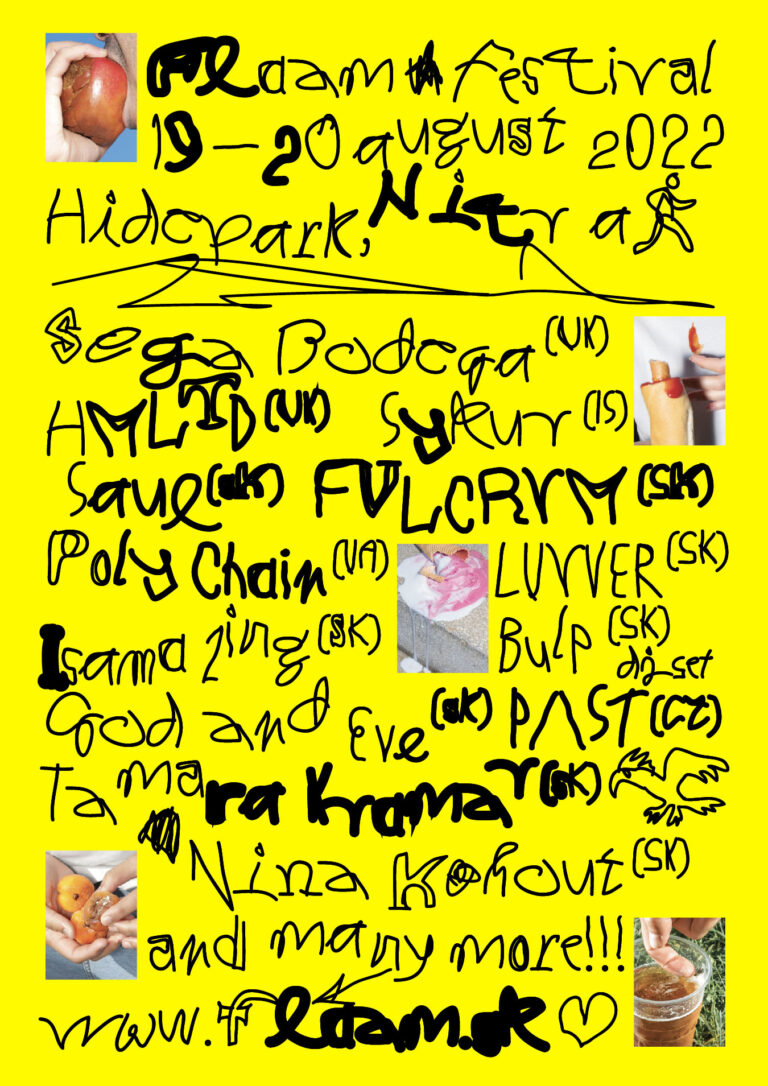 Fldam festival
19 – 20 august 2022
Hidepark, Nitra
Sega Bodega (UK)
HMLTD (UK) Sykur (IS)
Saul (sk) FVLCRVM (SK)
Poly Chain (UA) LUVVER (SK)
Isama Zing (SK) Bulp (SK) dj set
God and Eve (sk) P/\ST (CZ)
Tamara Kramar (SK)
Nina Kohout (SK)
and many more!!!
www.fldam.sk